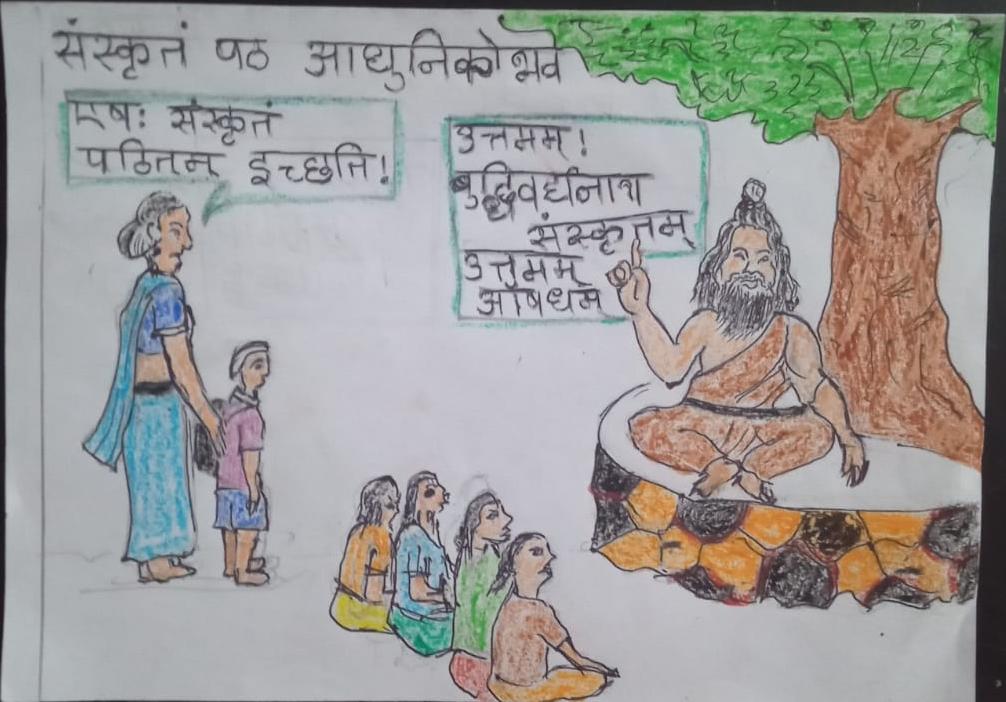 संस्कृतं पठ आधुनिको भव
एषः संस्कृतं
पठितम् इच्छति!
उत्तमम्!
बुद्धिवर्धनाय
संस्कृतम्
उत्तमम्
औषधम्